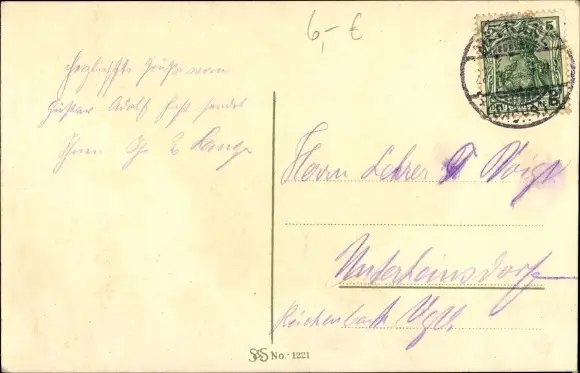 6,- €
herzlichste Grüße vom
Gustav Adolf Fest sendet
Ihnen
Herrn Lehrer Voigt
Unterheinsdorf
Reichenbach Vgtl.
5
S&S No. 1221